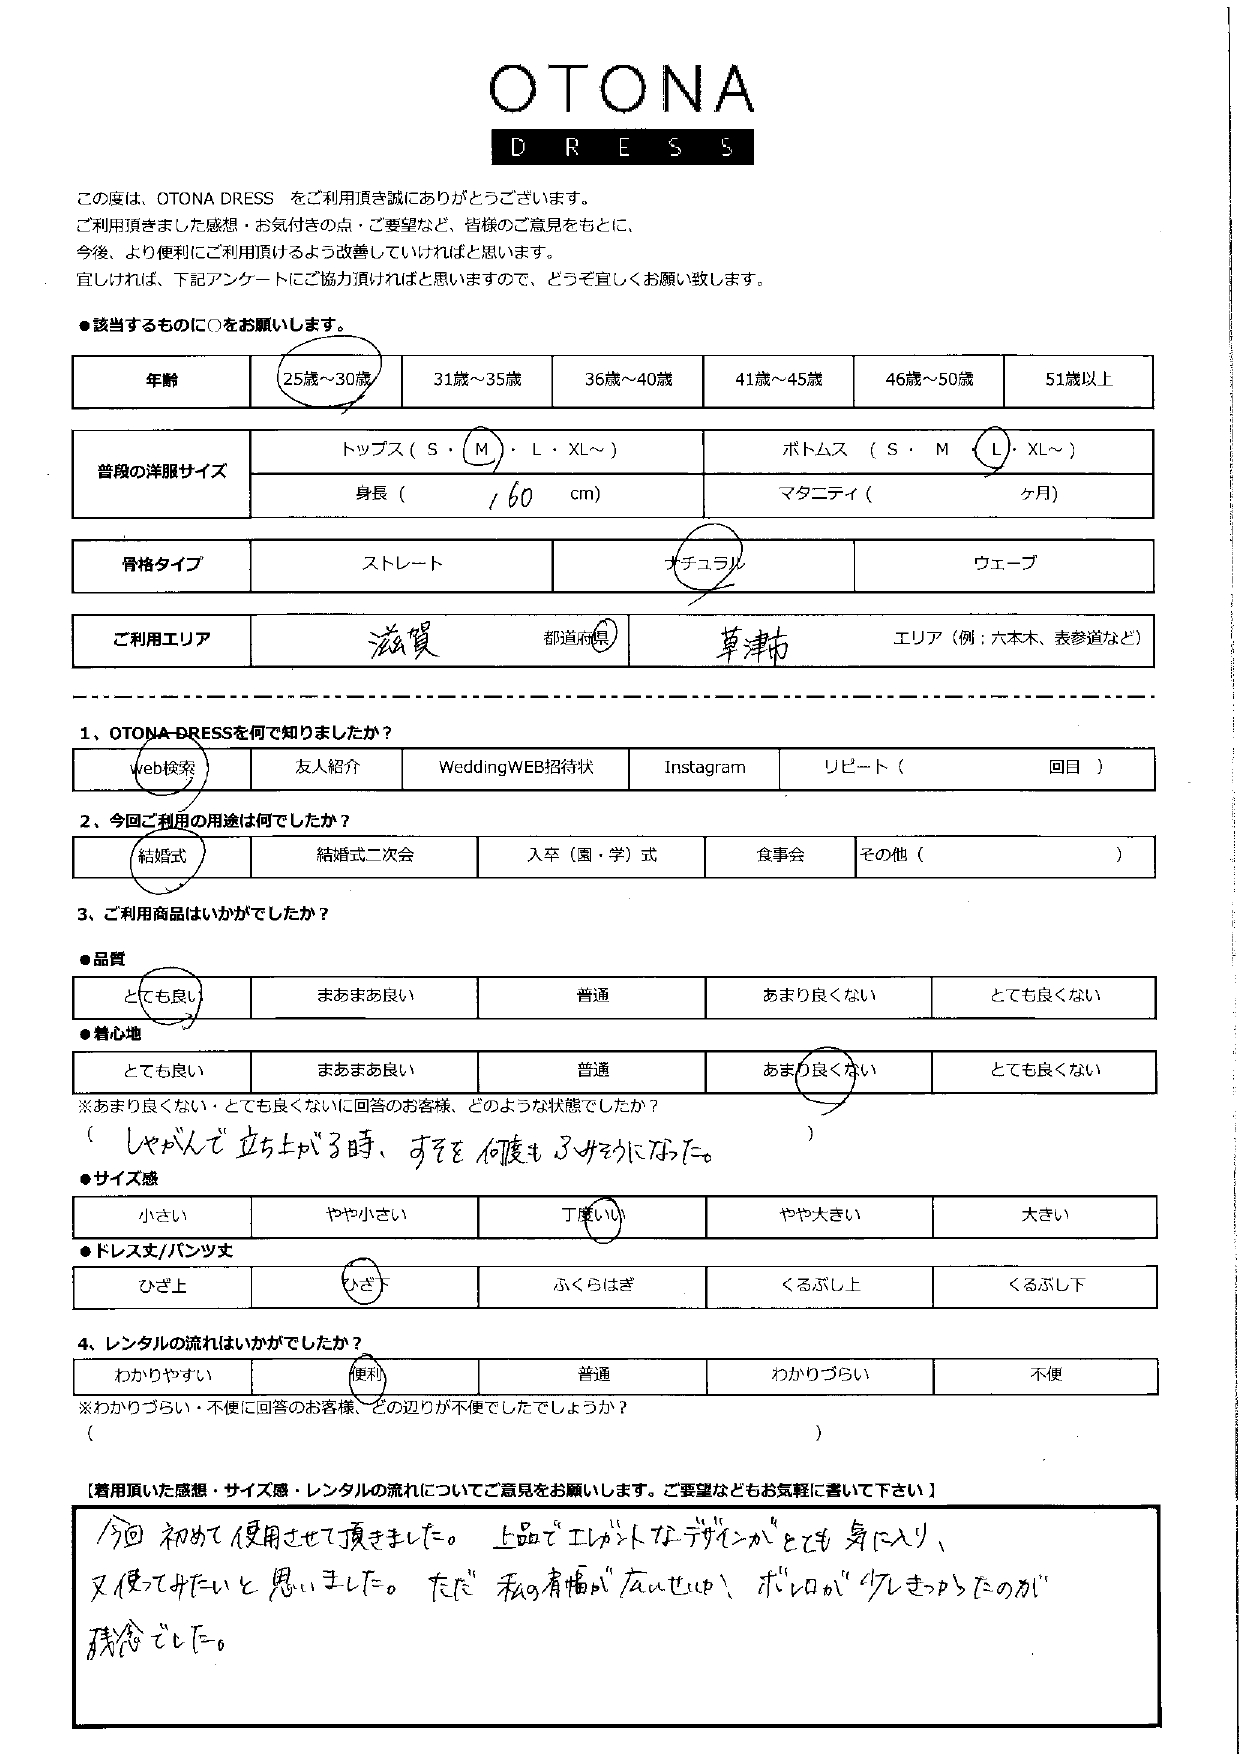 OTONA
DRESS
この度は、OTONA DRESS をご利用頂き誠にありがとうございます。
ご利用頂きました感想・お気付きの点・ご要望など、皆様のご意見をもとに、
今後、より便利にご利用頂けるよう改善していければと思います。
宜しければ、下記アンケートにご協力頂ければと思いますので、どうぞ宜しくお願い致します。
●該当するものに○をお願いします。
年齢 25歳～30歳 31歳～35歳 36歳～40歳 41歳～45歳 46歳～50歳 51歳以上
普段の洋服サイズ トップス ( S ・ M ・ L ・ XL～ ) ボトムス ( S ・ M ・ L ・ XL～ )
身長 ( 160 cm) マタニティ ( ヶ月)
骨格タイプ ストレート ナチュラル ウェーブ
ご利用エリア 滋賀 都道府県 草津市 エリア（例；六本木、表参道など）
1、OTONA DRESSを何で知りましたか？
web検索 友人紹介 WeddingWEB招待状 Instagram リピート（ 回目 ）
2、今回ご利用の用途は何でしたか？
結婚式 結婚式二次会 入卒（園・学）式 食事会 その他（ ）
3、ご利用商品はいかがでしたか？
●品質
とても良い まあまあ良い 普通 あまり良くない とても良くない
●着心地
とても良い まあまあ良い 普通 あまり良くない とても良くない
※あまり良くない・とても良くないに回答のお客様、どのような状態でしたか？
（ しゃがんで立ち上がる時、すそを何度もふみそうになった。 ）
●サイズ感
小さい やや小さい 丁度いい やや大きい 大きい
●ドレス丈/パンツ丈
ひざ上 ひざ下 ふくらはぎ くるぶし上 くるぶし下
4、レンタルの流れはいかがでしたか？
わかりやすい 便利 普通 わかりづらい 不便
※わかりづらい・不便に回答のお客様、どの辺りが不便でしたでしょうか？
（ ）
【着用頂いた感想・サイズ感・レンタルの流れについてご意見をお願いします。ご要望などもお気軽に書いて下さい 】
今回 初めて使用させて頂きました。 上品でエレガントなデザインがとても気に入り、
又使ってみたいと思いました。ただ 私の肩幅が広いせいか、ボレロが少しきつかったのが
残念でした。